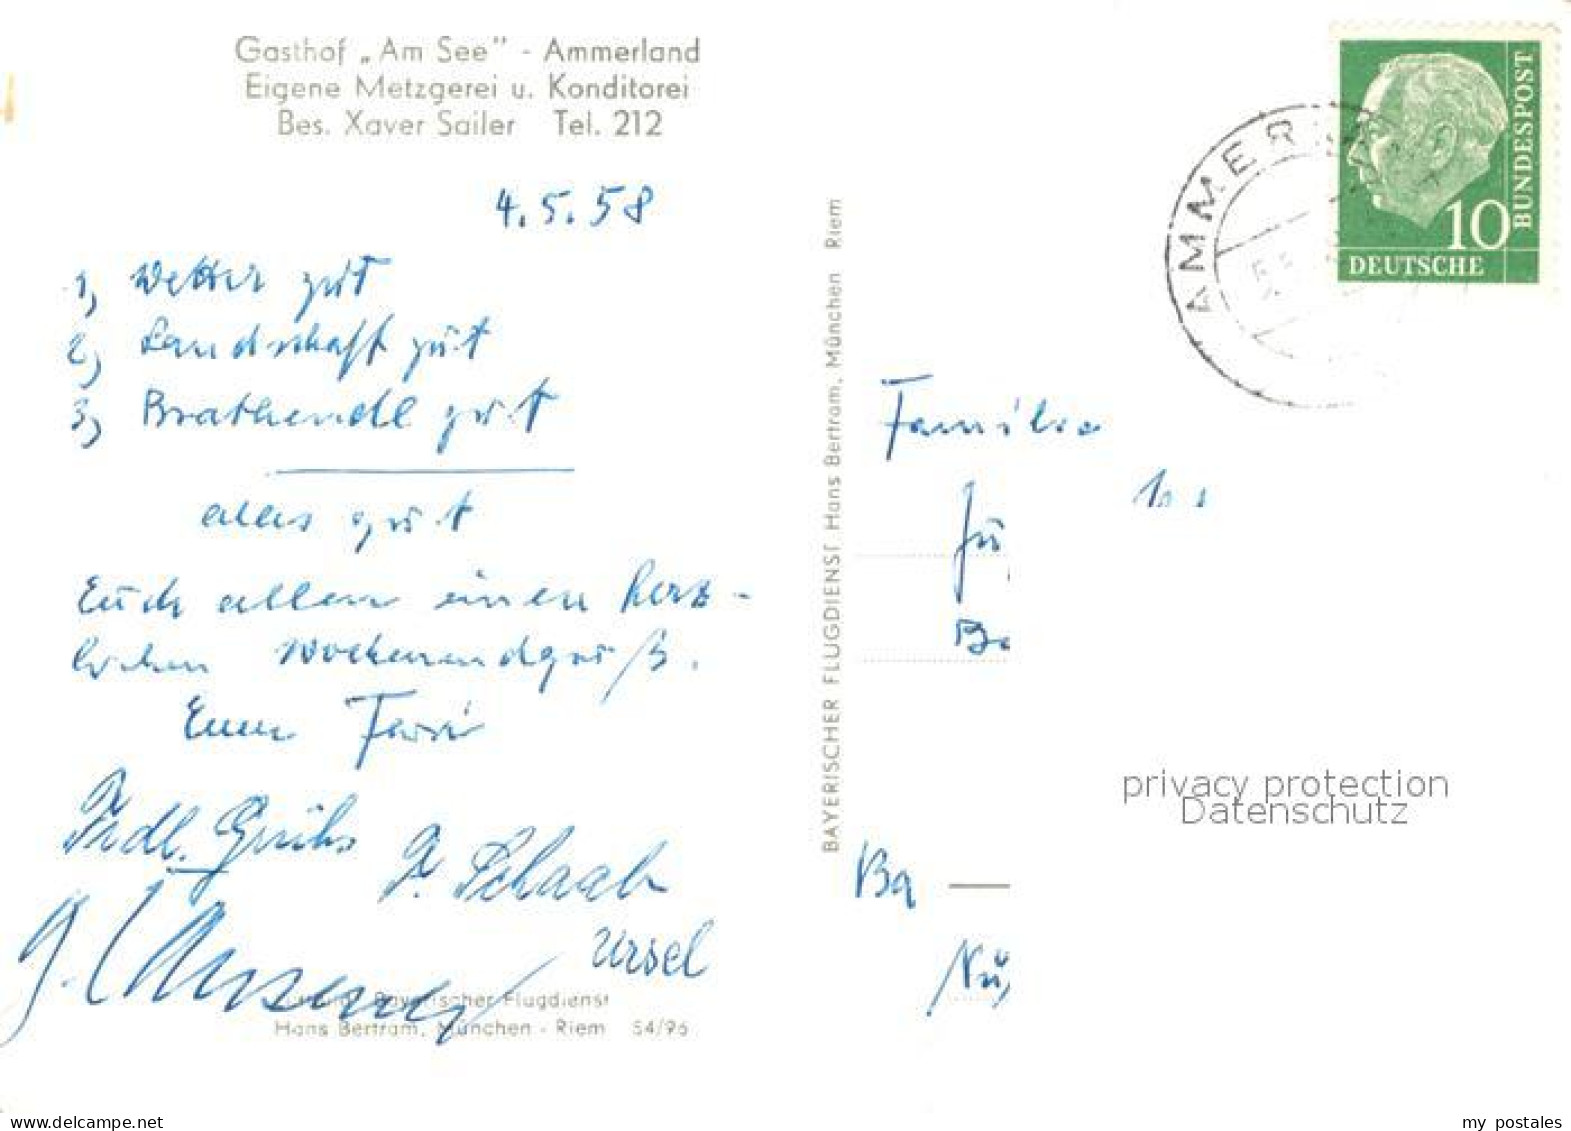 Gasthof „Am See" - Ammerland
Eigene Metzgerei u. Konditorei
Bes. Xaver Sailer Tel. 212
4.5.58
1, Wetter gut
2, Landschaft gut
3, Brathendl gut
alles gut
Euch allen einen herz-
lichen Wochenendgruß.
Euer
Frdl.
Schaab
Ursel
Bayerischer Flugdienst
Hans Bertram, München - Riem 54/96
BAYERISCHER FLUGDIENST Hans Bertram, München Riem
BUNDESPOST
10
DEUTSCHE
AMMER
Familie
Jü
Ba
privacy protection
Datenschutz
Nü
delcampe.net
my_postales